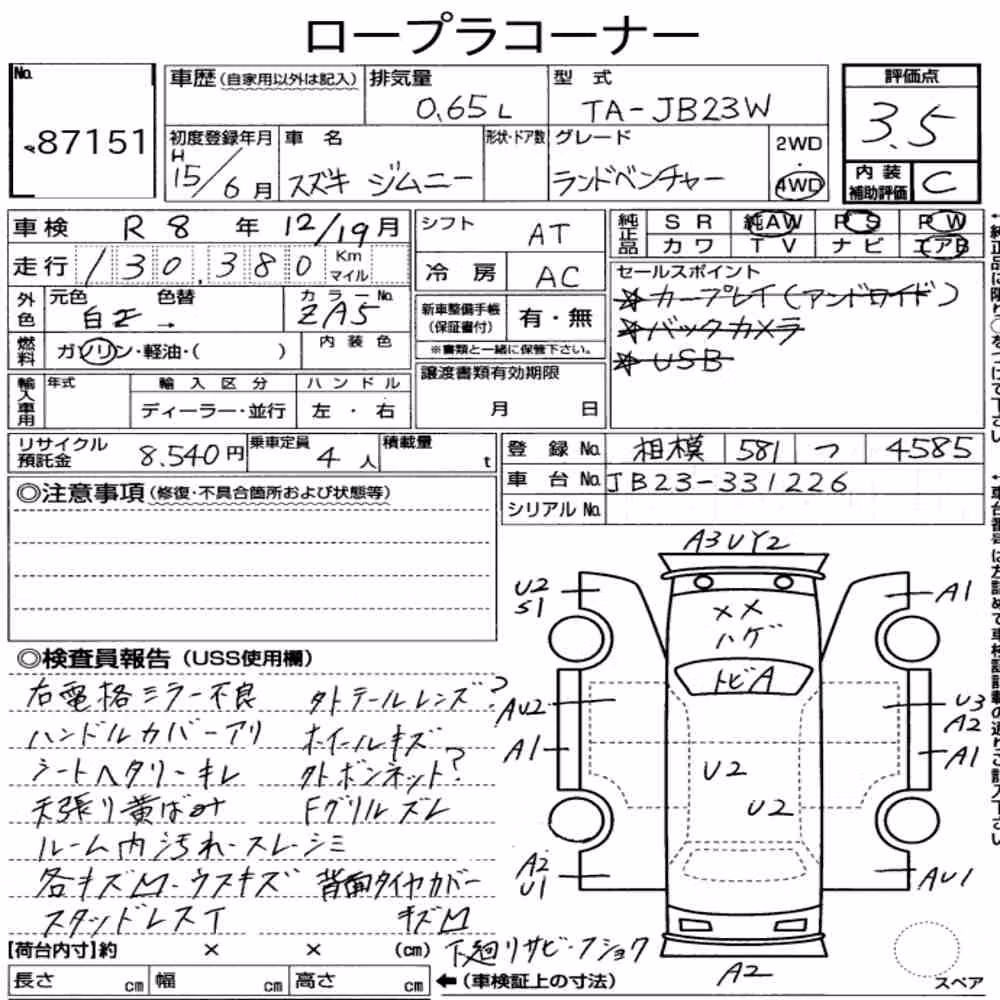 ロープラコーナー
No. 87151
車歴 (自家用以外は記入)
排気量 0.65L
型 式 TA-JB23W
評価点 3.5
初度登録年月 H 15/6月
車 名 スズキ ジムニー
形状・ドア数
グレード ランドベンチャー
2WD・4WD
内装補助評価 C
車検 R8年 12/19月
シフト AT
純正品 SR 純AW PS PW
カワ TV ナビ エアB
走行 130,380 Km マイル
冷房 AC
セールスポイント
☆カープレイ(アンドロイド)
☆バックカメラ
☆USB
外色 元色 白 色替 →
カラーNo. ZA5
新車整備手帳 (保証書付) 有・無
※書類と一緒に保管下さい。
燃料 ガソリン・軽油・( )
内装色
譲渡書類有効期限
月 日
輸入車用 年式 輸入区分 ハンドル
ディーラー・並行 左・右
リサイクル預託金 8.540円
乗車定員 4人
積載量 t
登録No. 相模 581 つ 4585
車台No. JB23-331226
シリアルNo.
◎注意事項 (修復・不具合箇所および状態等)
◎検査員報告 (USS使用欄)
右電格ミラー不良 外テールレンズ?
ハンドルカバーアリ ホイールキズ
シートヘタリ・キレ 外ボンネット?
天張り黄ばみ Fグリルズレ
ルーム内汚れ・スレ・シミ
各キズM・ウスキズ 背面タイヤカバー
スタッドレスT キズM
下廻りサビ・フショク
A3UY2
U2
S1
A1
××
ハゲ
トビA
AU2
U3
A2
A1
A1
U2
U2
A2
U1
AU1
A2
スペア
[荷台内寸] 約 × × (cm)
長さ cm 幅 cm 高さ cm
←(車検証上の寸法)